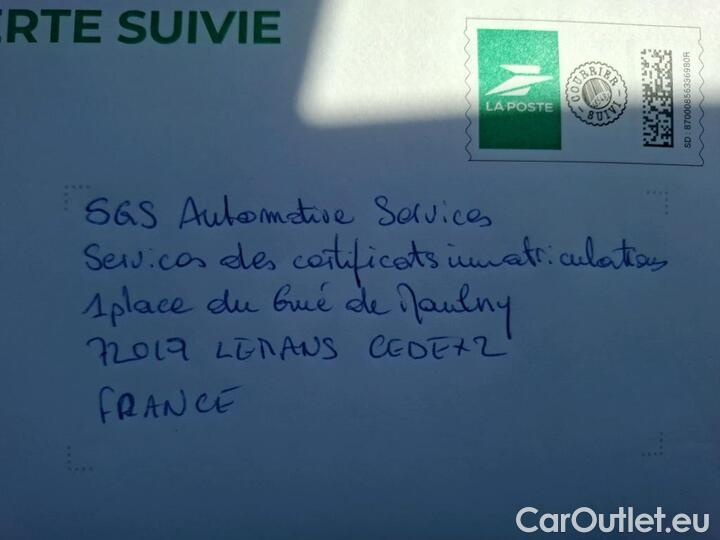 ERTE SUIVIE
LA POSTE
COURRIER SUIVI
SD : 87000856336980R
SGS Automotive Services
Services des certificats immatriculations
1 place du Gué de Maulny
72019 LEMANS CEDEX2
FRANCE
CarOutlet.eu